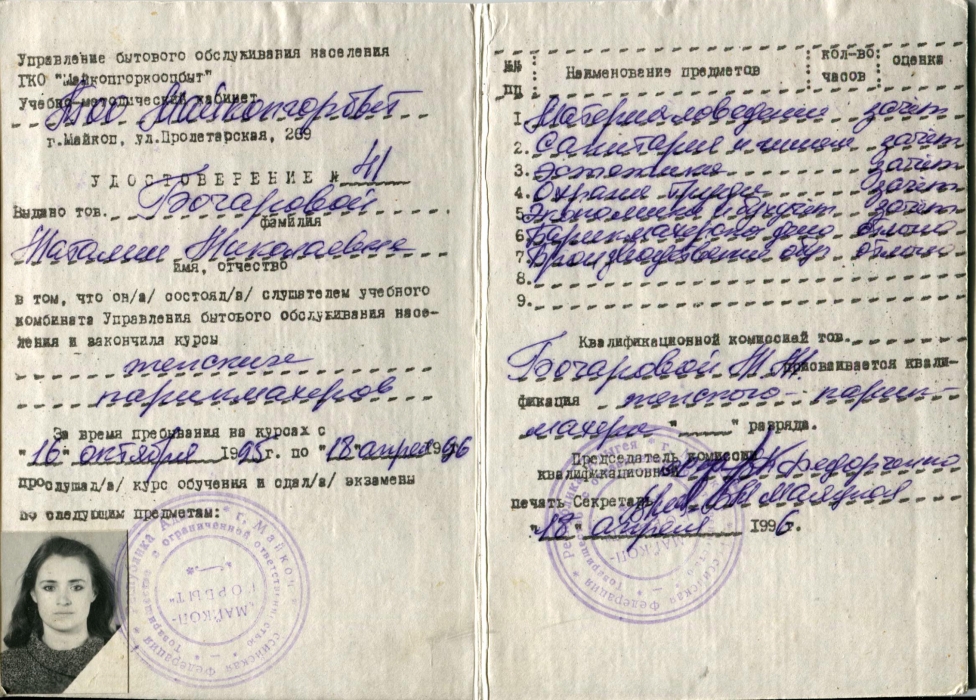 Управление бытового обслуживания населения
ГКО "Майкопгоркоопбыт"
Учебно-методический кабинет
ТОО Майкопгорбыт
г.Майкоп, ул.Пролетарская, 269
УДОСТОВЕРЕНИЕ № 41
Выдано тов. Бочаровой
фамилия
Наталии Николаевне
имя, отчество
в том, что он/а/ состоял/а/ слушателем учебного
комбината Управления бытового обслуживания насе-
ления и закончила курсы
женских
парикмахеров
За время пребывания на курсах с
"16" октября 1995г. по "18" апреля 1996
прослушал/а/ курс обучения и сдал/а/ экзамены
по следующим предметам:
г. Майкоп
ограниченной ответственностью
"МАЙКОП-
ГОРБЫТ"
Российская Федерация
Товарищество
№№ пп Наименование предметов кол-во часов оценка
1. Материаловедение зачет
2. Санитария и гигиена зачет
3. Эстетика зачет
4. Охрана труда зачет
5. Экономика и зачет
6. Парикмахерское дело отлично
7. Производственное обуч. отлично
8.
9.
Квалификационной комиссией тов.
Бочаровой Н Н присваивается квали-
фикация женского парик-
махера " " разряда.
Председатель комиссии
квалификационной Федорченко
печать Секретарь
"18" апреля 1996г.